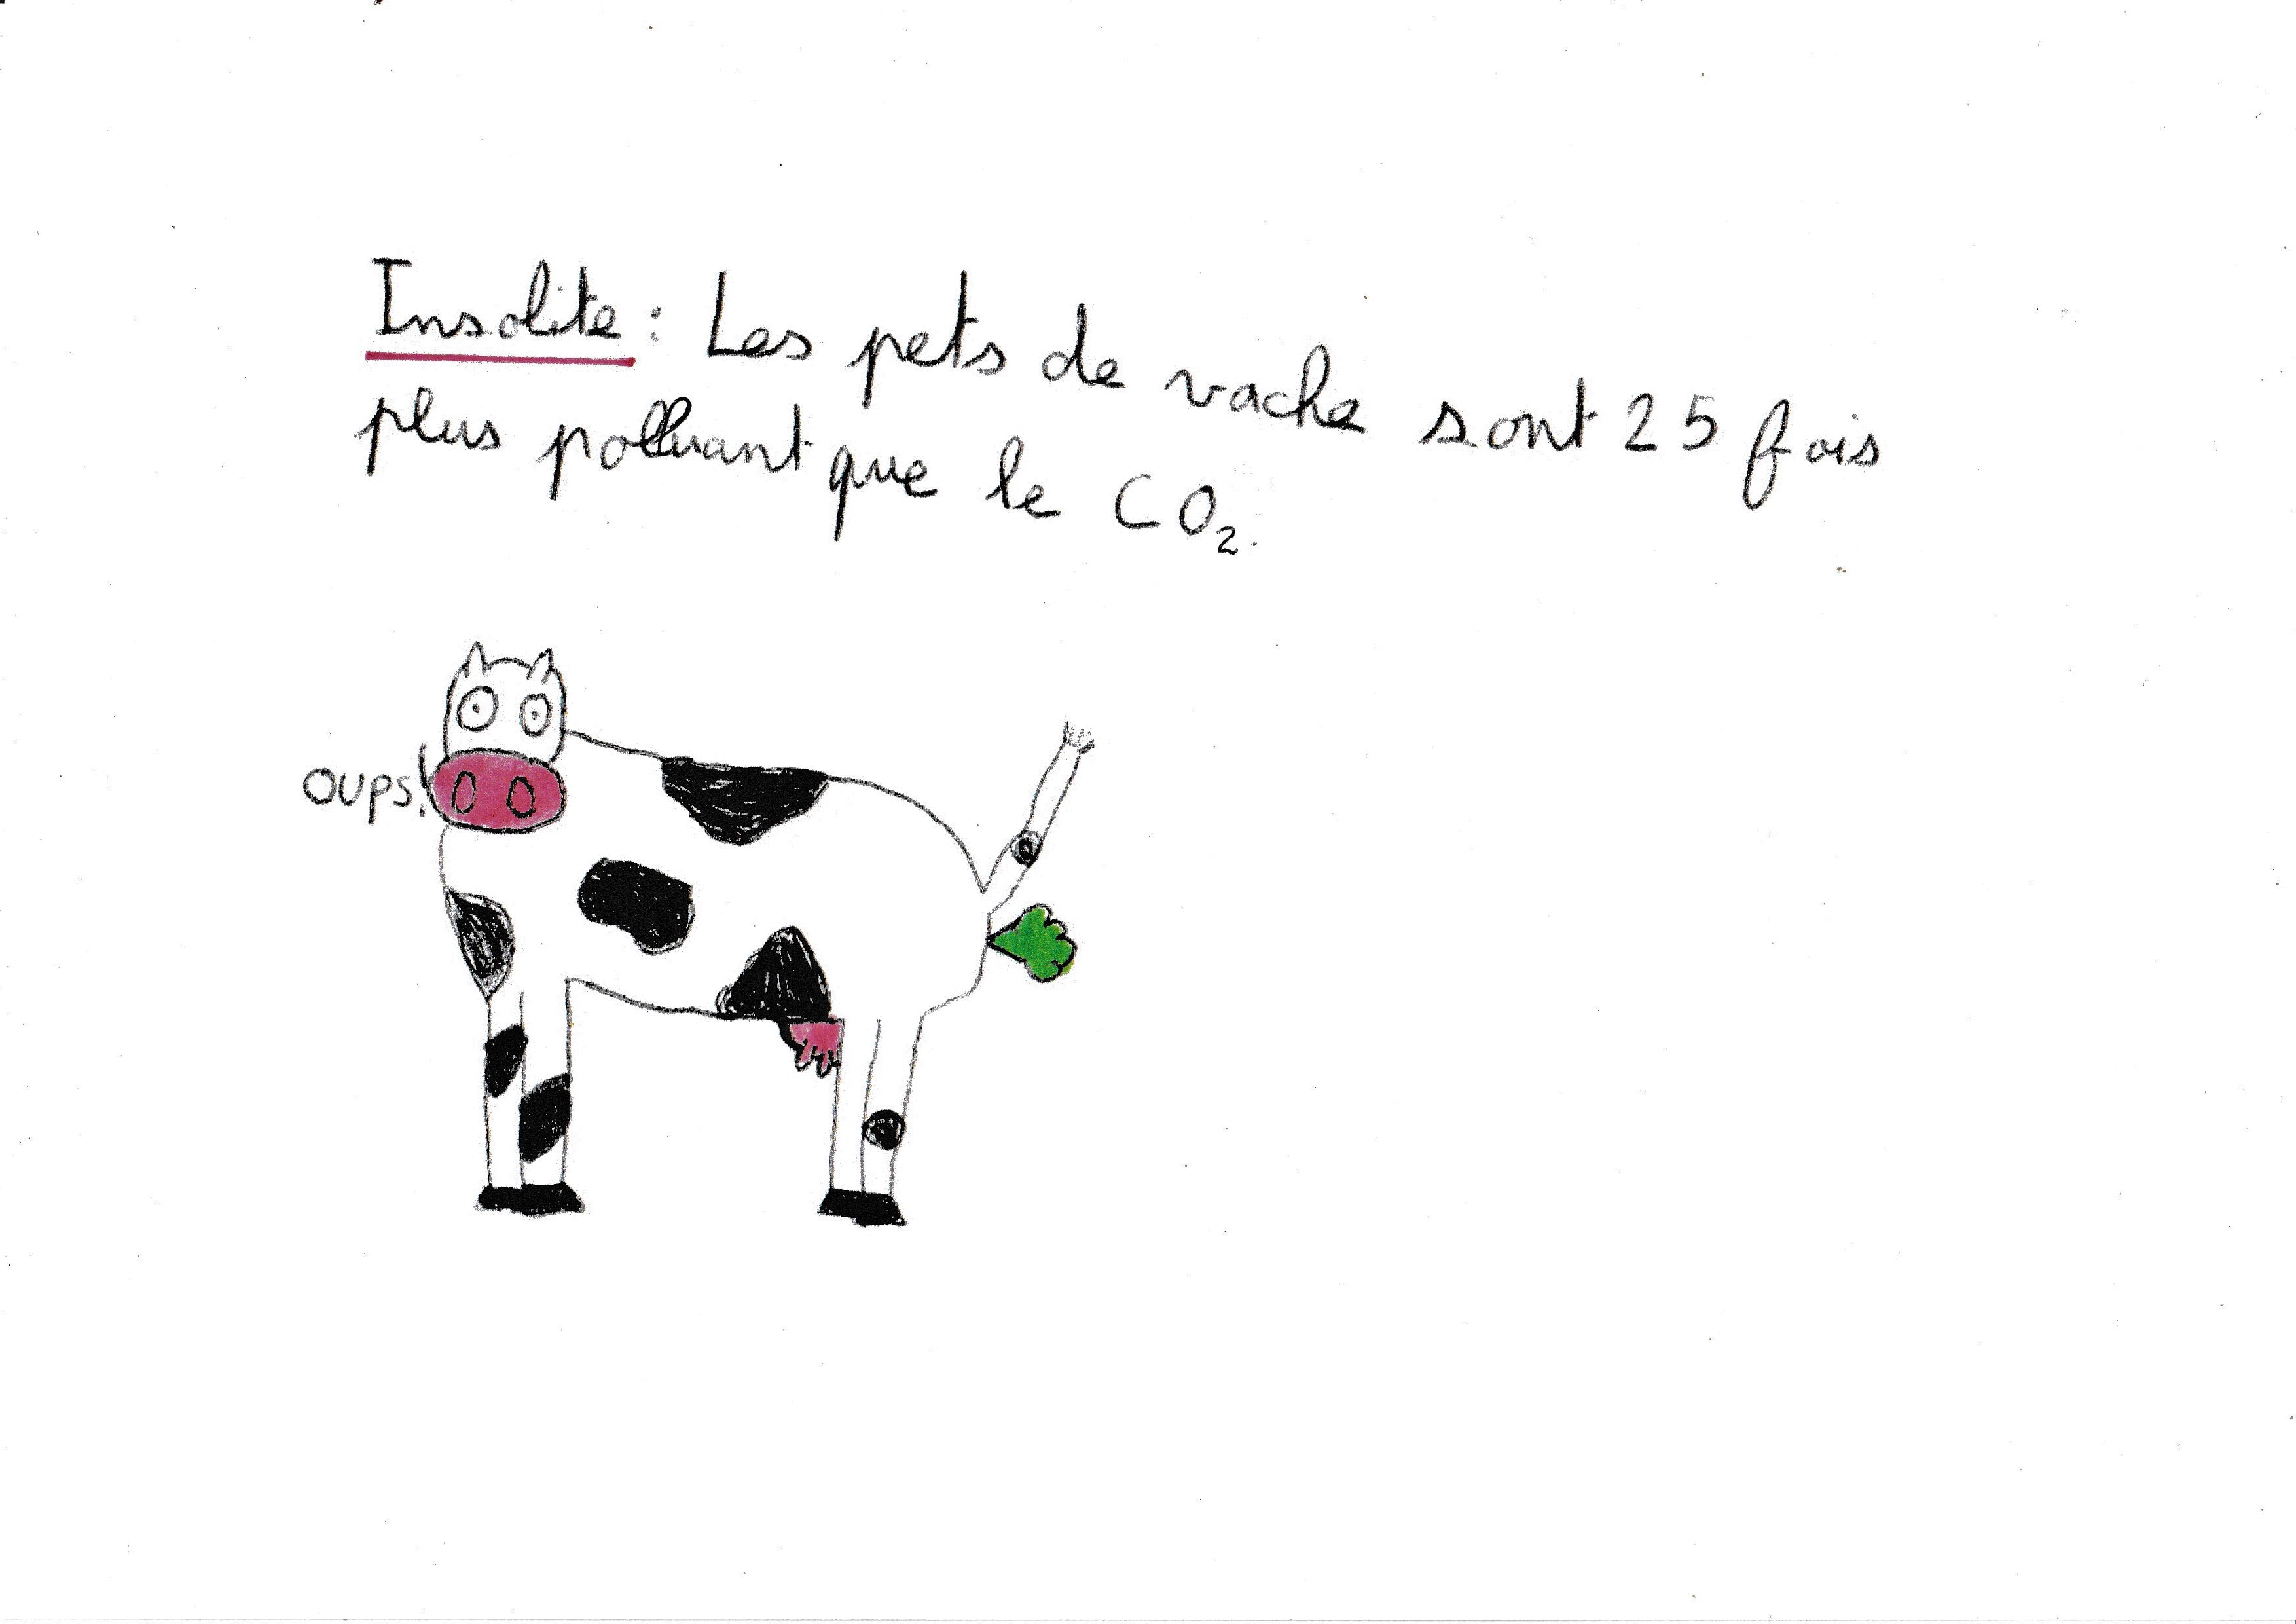 Insolite : Les pets de vache sont 25 fois
plus polluant que le CO₂.
oups!